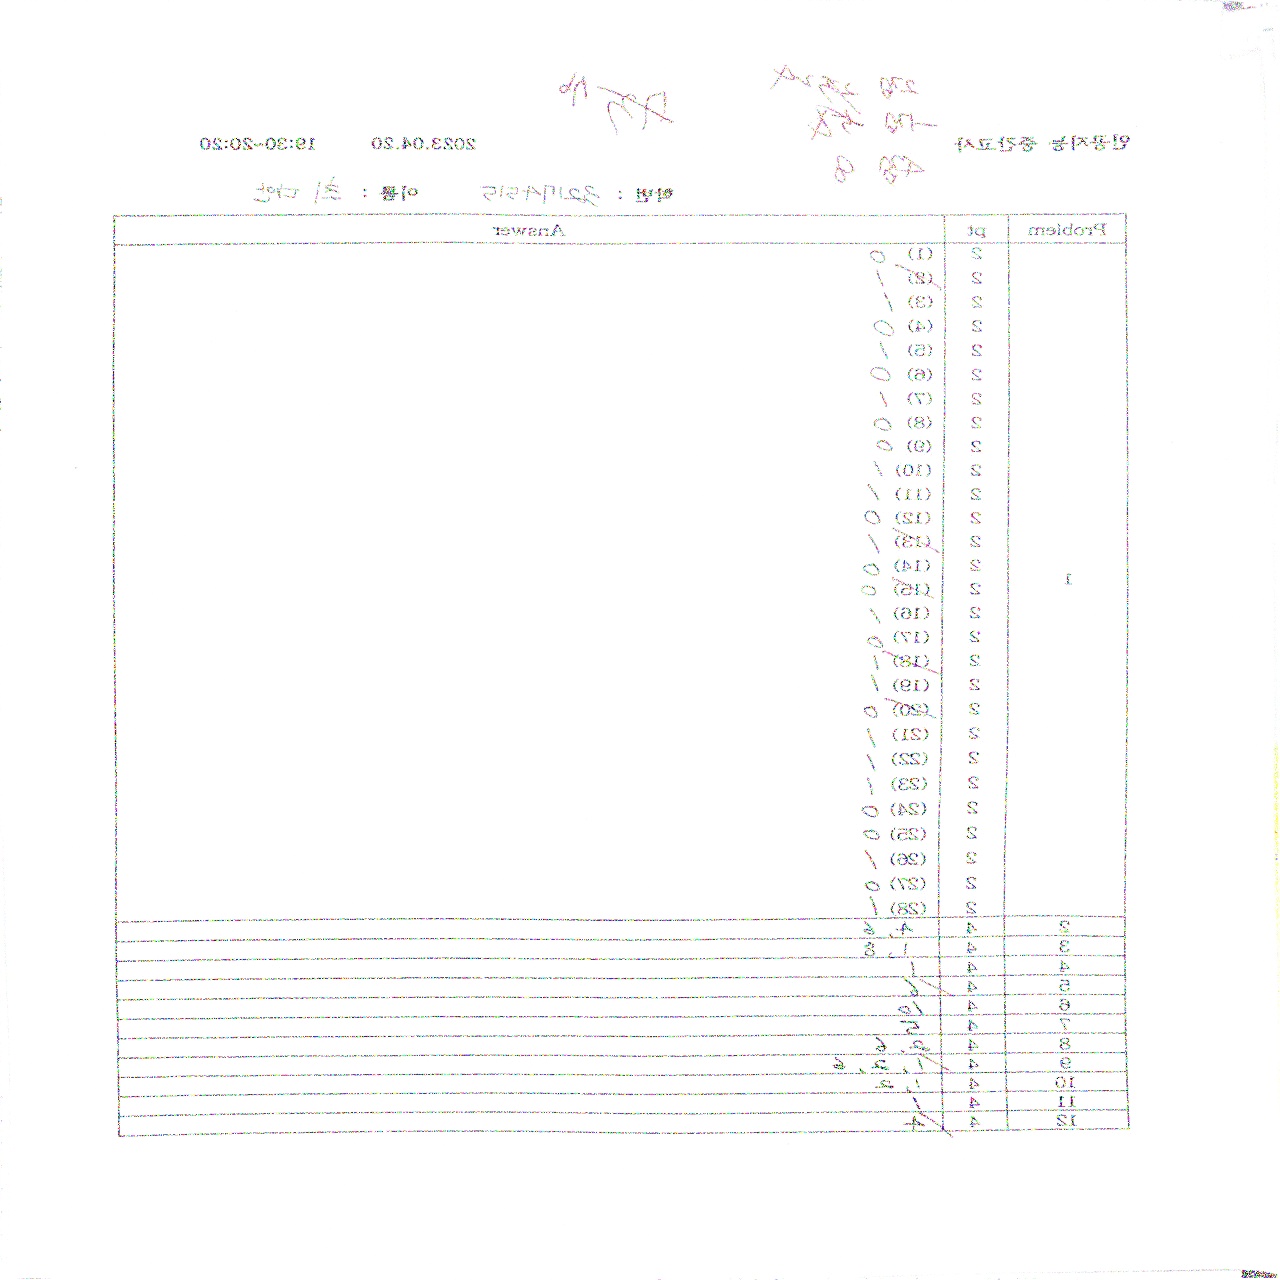 인공지능 중간고사 2023.04.20 19:30~20:20
학번 : 이름 :
Problem pt Answer
1
2 (1) 0
2 (2) 1
2 (3) 1
2 (4) 0
2 (5) 1
2 (6) 0
2 (7) 1
2 (8) 0
2 (9) 0
2 (10) 1
2 (11) 1
2 (12) 0
2 (13) 1
2 (14) 0
2 (15) 0
2 (16) 1
2 (17) 0
2 (18) 1
2 (19) 1
2 (20) 0
2 (21) 1
2 (22) 1
2 (23) 1
2 (24) 0
2 (25) 0
2 (26) 1
2 (27) 0
2 (28) 1
2 4 4, 6
3 4 1, 8
4 4 1
5 4 6
6 4 10
7 4
8 4
9 4 1, 2, 6
10 4 1, 2
11 4 1
12 4 4